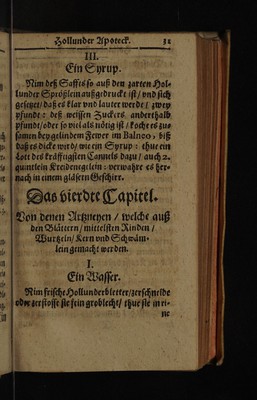 Hollunder Apoteck. 31
III.
Ein Syrup.
Nim deß Saffts so auß den zarten Hol-
lunder Sprößlein außgedruckt ist / vnd sich
gesetzet / daß es klar vnd lauter worde / zwey
pfundt: deß weissen Zuckers anderthalb
pfundt / oder so viel als nötig ist / koch es zu-
samen bey gelindem Fewer im Balneo / biß
daß es dicke wird / wie ein Syrup: thue ein
Lott des kräfftigsten Canneels dazu / auch 2.
quintlein Kreidenegelein: verwahre es her-
nach in einem gläsern Geschirr.
Das vierdte Capitel.
Von denen Artzneyen / welche auß
den Blättern / mittelsten Rinden /
Wurtzeln / Kern vnd Schwäm-
lein gemacht werden.
I.
Ein Wasser.
Nim frische Hollunderbletter / zerschneide
oder zerstosse sie fein gröblecht / thue sie in ei-
ne